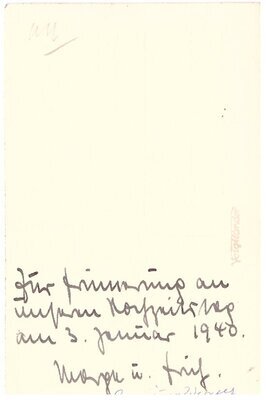 Zur Erinnerung an
unseren Hochzeitstag
am 3. Januar 1940.
u. Fritz.